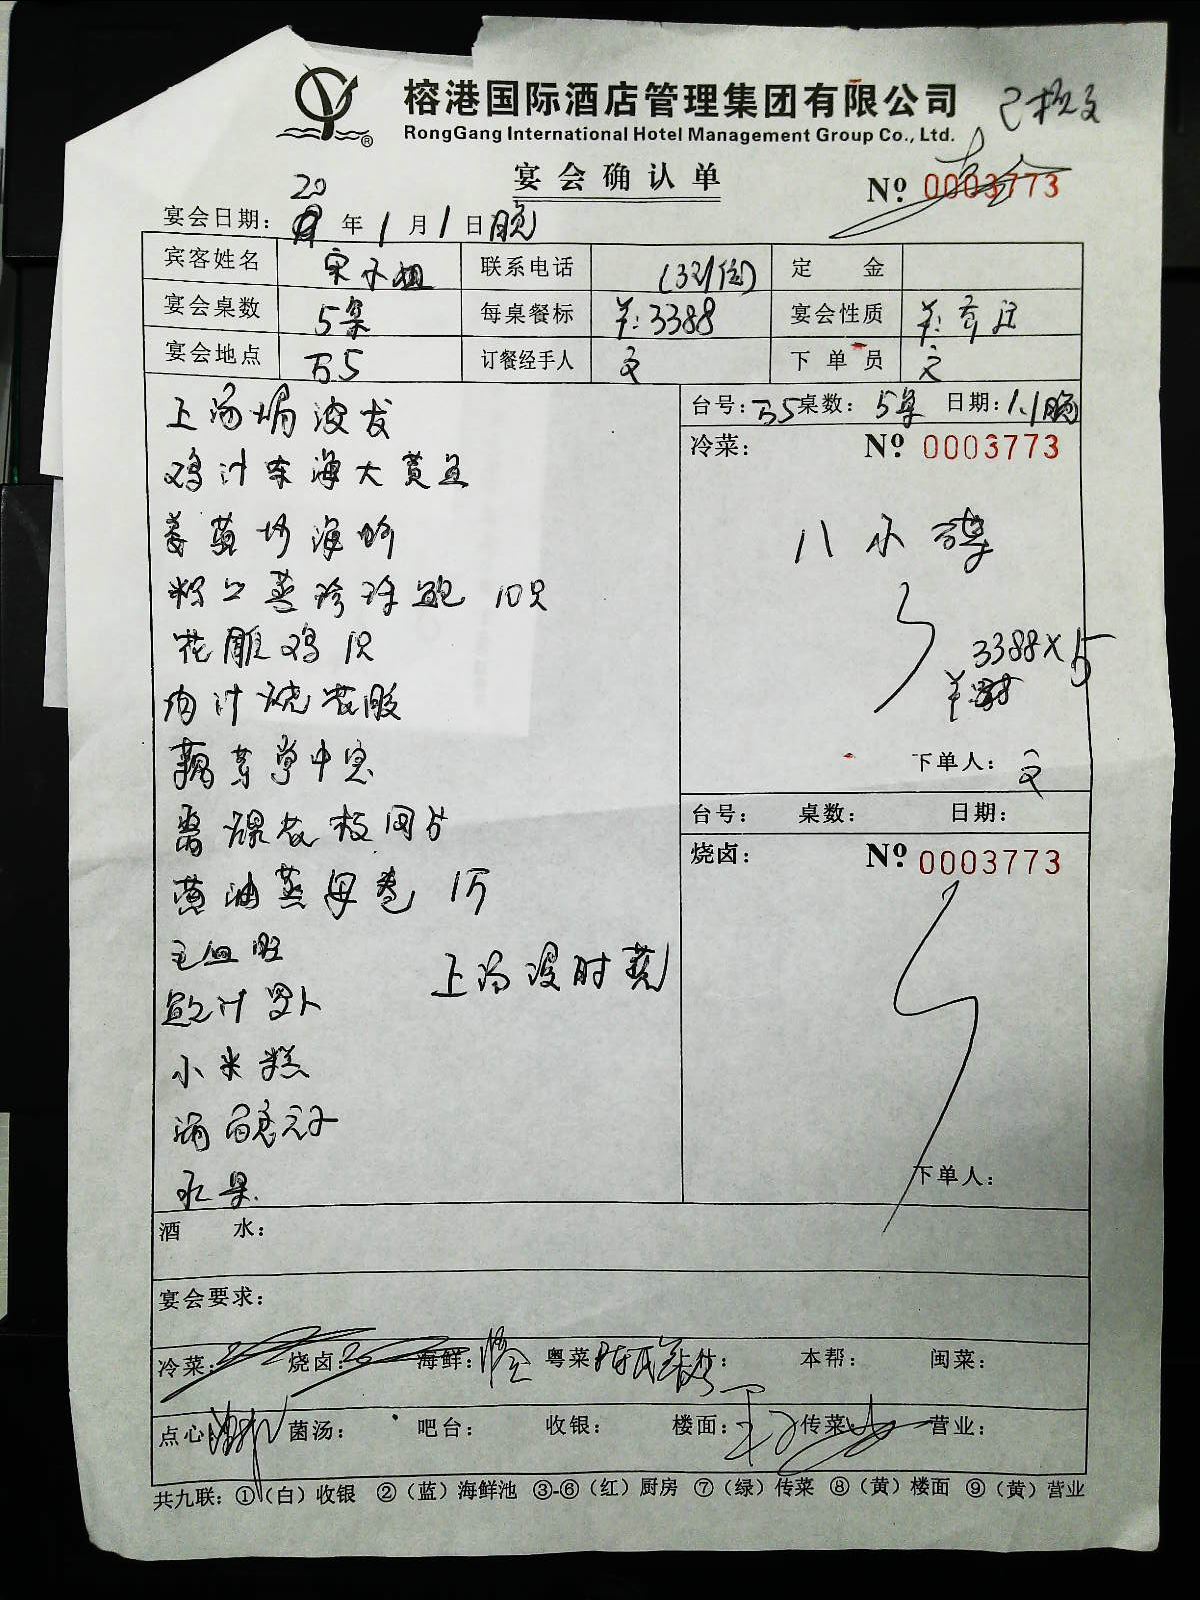 榕港国际酒店管理集团有限公司
RongGang International Hotel Management Group Co., Ltd.
宴会确认单
№ 0003773
宴会日期: 20 年 1 月 1 日 晚
宾客姓名 宋小姐 联系电话 定金
宴会桌数 5桌 每桌餐标 羊:3388 宴会性质
宴会地点 万5 订餐经手人 文 下单员 文
台号: 万5 桌数: 5桌 日期: 1.1晚
上汤焗波龙
冷菜: № 0003773
鸡汁东海大黄鱼
姜葱炒海蟹
八小碟
蒸珍珠鲍 10只
花雕鸡 1只
3388×5
肉汁烧
下单人: 文
台号: 桌数: 日期:
烧卤: № 0003773
黄油蒸 1斤
毛血旺
上汤浸时蔬
鲍汁萝卜
小米糕
水果.
下单人:
酒水:
宴会要求:
冷菜: 烧卤: 海鲜: 粤菜 本帮: 闽菜:
点心: 菌汤: 吧台: 收银: 楼面: 传菜: 营业:
共九联: ①(白)收银 ②(蓝)海鲜池 ③-⑥(红)厨房 ⑦(绿)传菜 ⑧(黄)楼面 ⑨(黄)营业